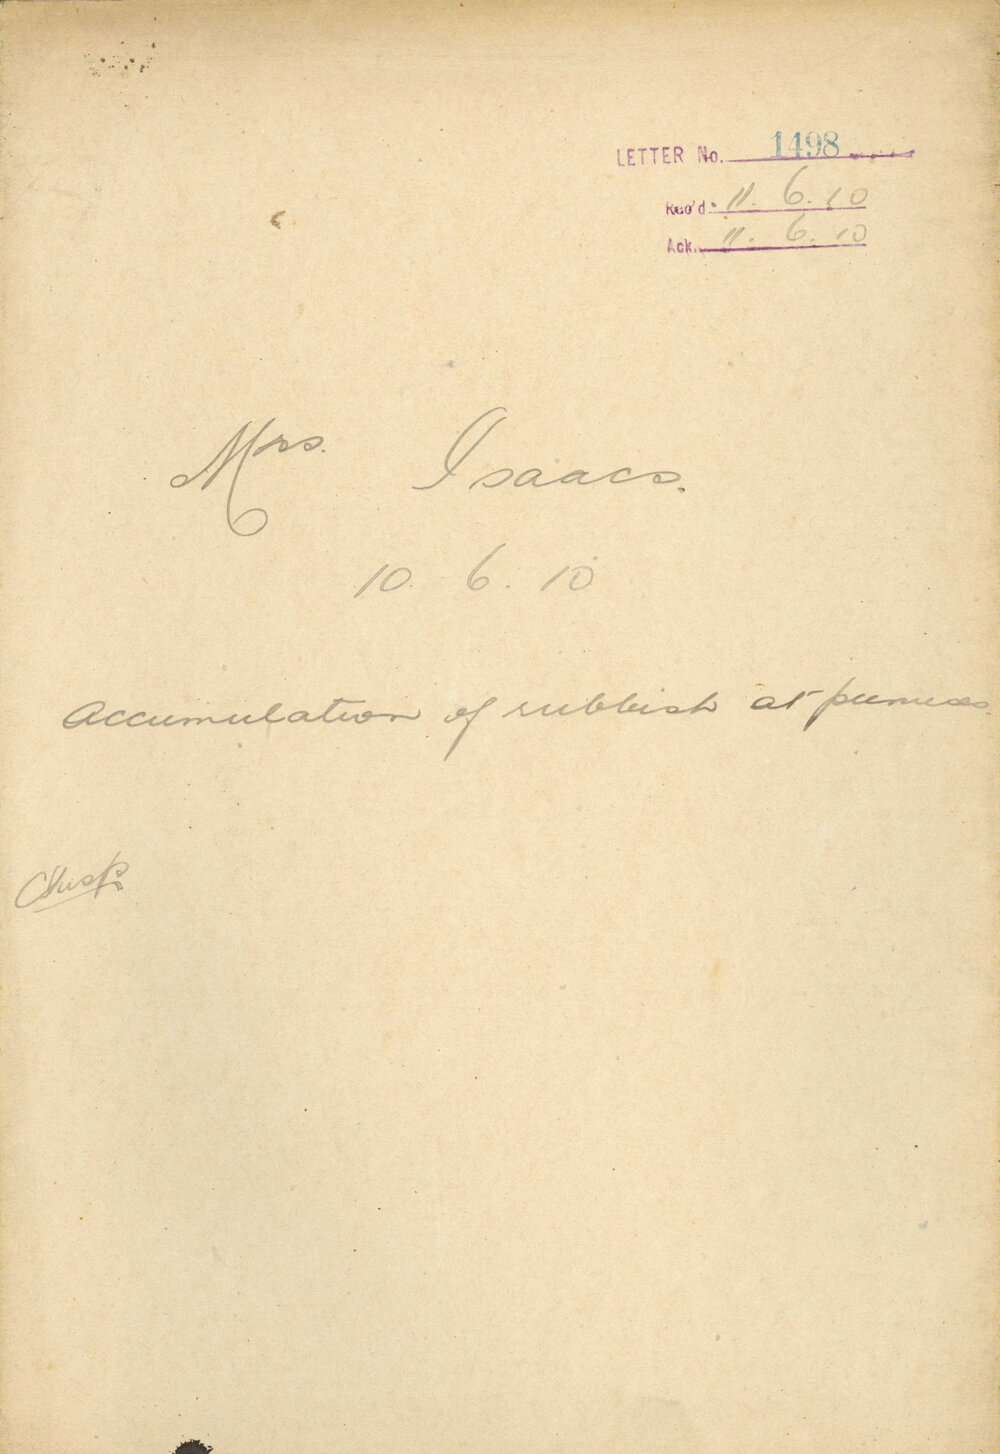 LETTER No. 1498
Rec'd. 11. 6. 10
Ack. 11. 6. 10
Mrs. Isaacs.
10. 6. 10
Accumulation of rubbish at premises.